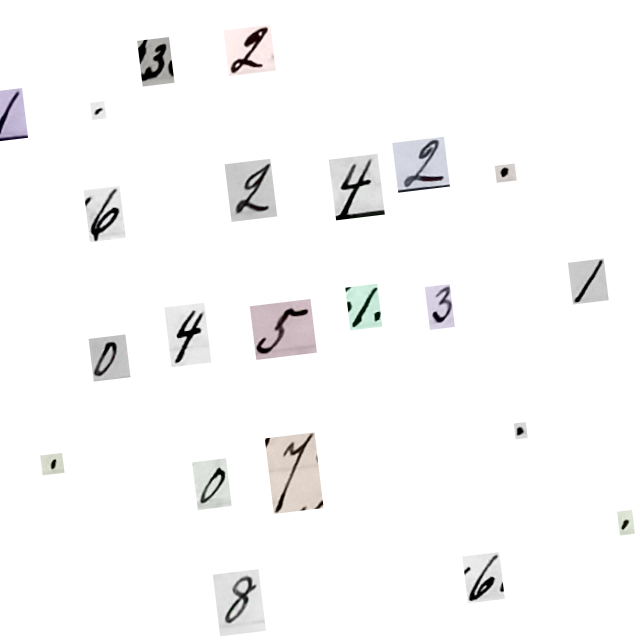 1.32
6242.
0451.31
.07.
86.